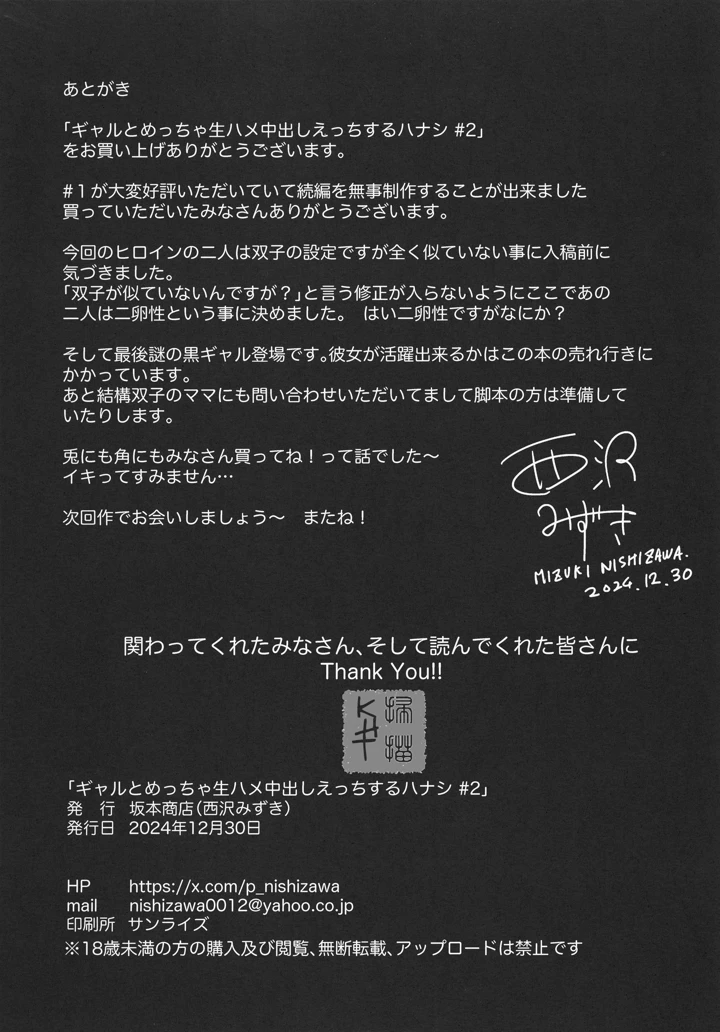 あとがき
「ギャルとめっちゃ生ハメ中出しえっちするハナシ #2」
をお買い上げありがとうございます。
#１が大変好評いただいていて続編を無事制作することが出来ました
買っていただいたみなさんありがとうございます。
今回のヒロインの二人は双子の設定ですが全く似ていない事に入稿前に
気づきました。
「双子が似ていないんですが？」と言う修正が入らないようにここであの
二人は二卵性という事に決めました。　はい二卵性ですがなにか？
そして最後謎の黒ギャル登場です。彼女が活躍出来るかはこの本の売れ行きに
かかっています。
あと結構双子のママにも問い合わせいただいてまして脚本の方は準備して
いたりします。
兎にも角にもみなさん買ってね！って話でした～
イキってすみません…
次回作でお会いしましょう～　またね！
西沢
みずき
MIZUKI NISHIZAWA.
2024.12.30
関わってくれたみなさん、そして読んでくれた皆さんに
Thank You!!
「ギャルとめっちゃ生ハメ中出しえっちするハナシ #2」
発　行　坂本商店（西沢みずき）
発行日　2024年12月30日
HP　https://x.com/p_nishizawa
mail　nishizawa0012@yahoo.co.jp
印刷所　サンライズ
※18歳未満の方の購入及び閲覧、無断転載、アップロードは禁止です